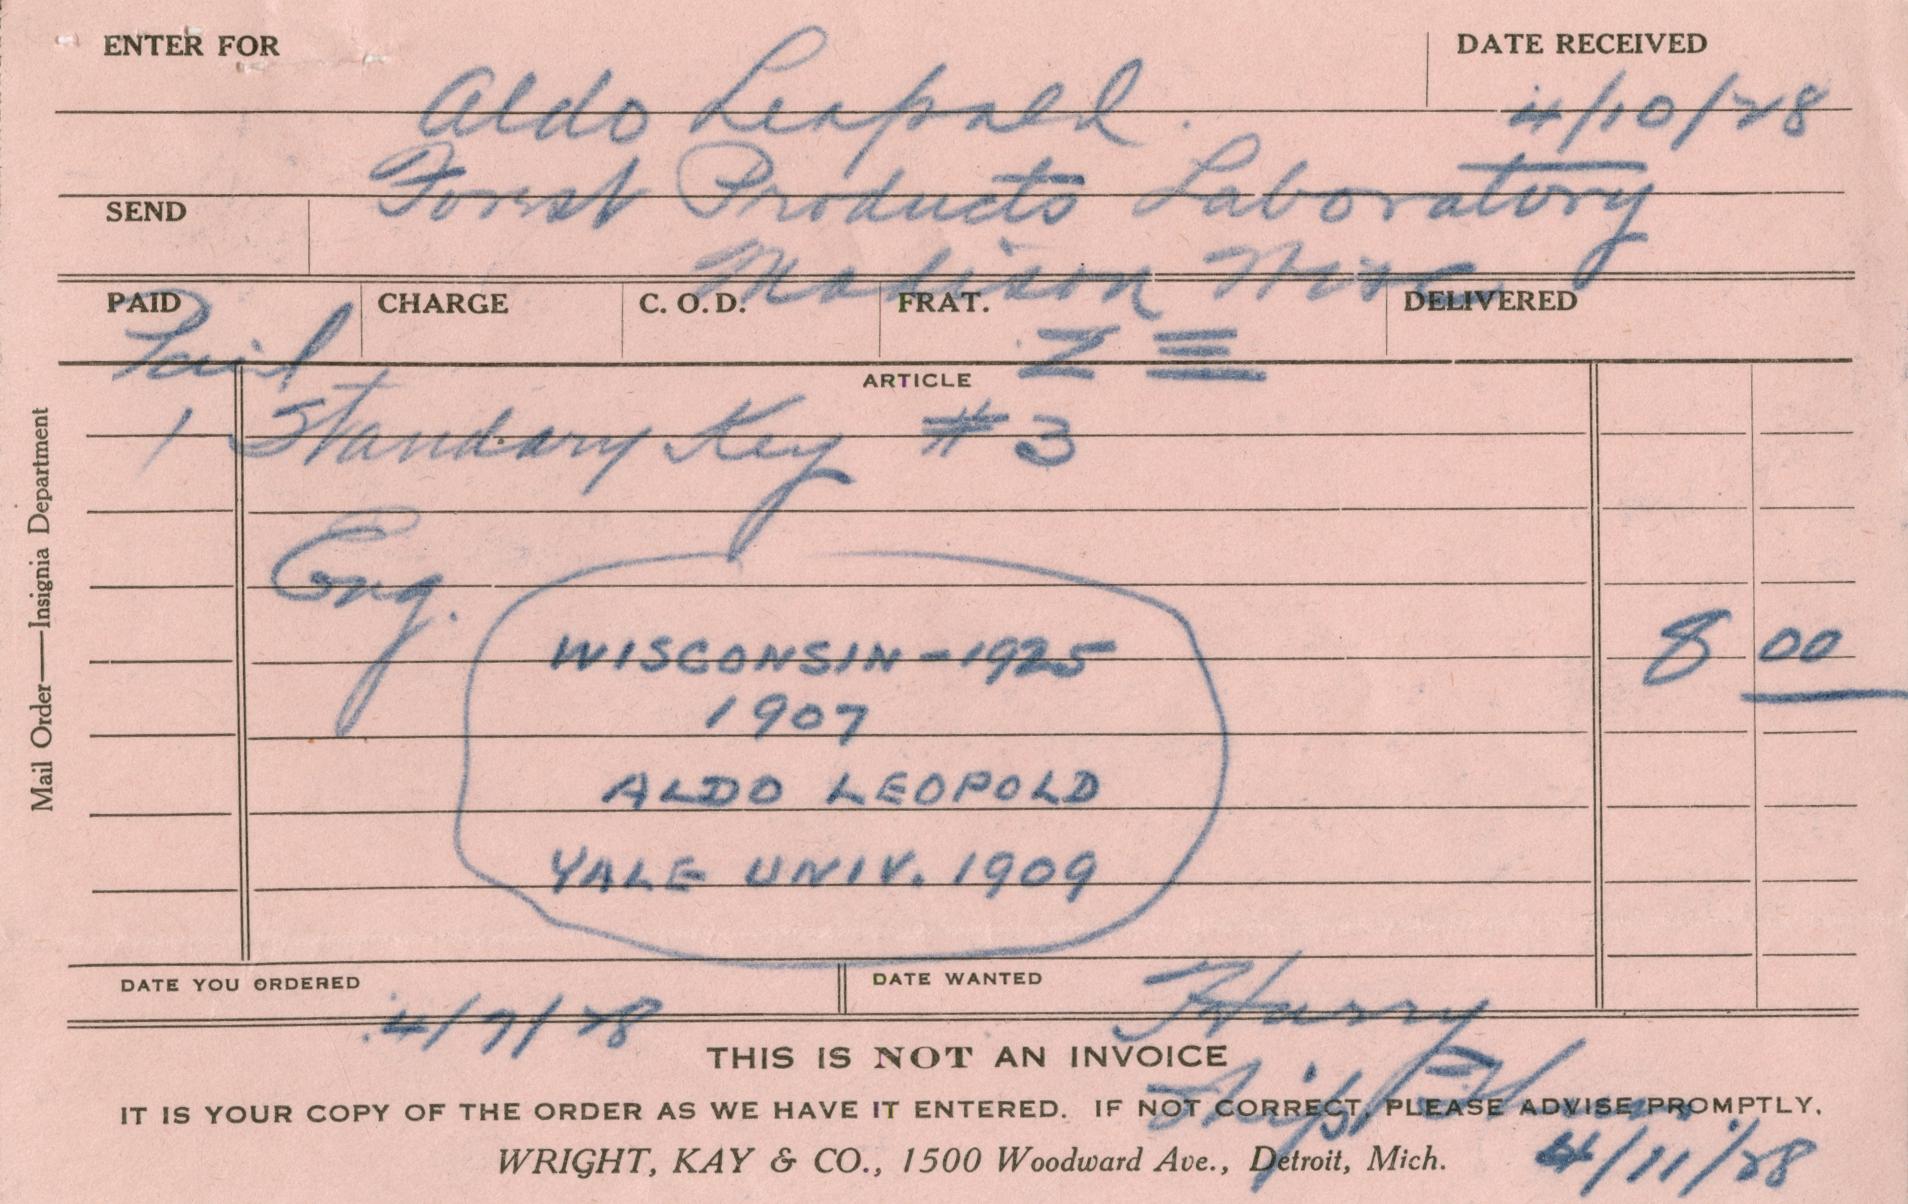 ENTER FOR
DATE RECEIVED
Aldo Leopold.
4/10/28
Forest Products Laboratory
SEND
Madison Wis
PAID
CHARGE
C. O. D.
FRAT.
DELIVERED
Paid
Σ Ξ
ARTICLE
1 Standary Key #3
Eng.
WISCONSIN-1925
1907
8 00
ALDO LEOPOLD
YALE UNIV. 1909
Mail Order—Insignia Department
DATE YOU ORDERED
4/7/28
DATE WANTED
Hurry
THIS IS NOT AN INVOICE
IT IS YOUR COPY OF THE ORDER AS WE HAVE IT ENTERED. IF NOT CORRECT, PLEASE ADVISE PROMPTLY.
WRIGHT, KAY & CO., 1500 Woodward Ave., Detroit, Mich.
4/11/28